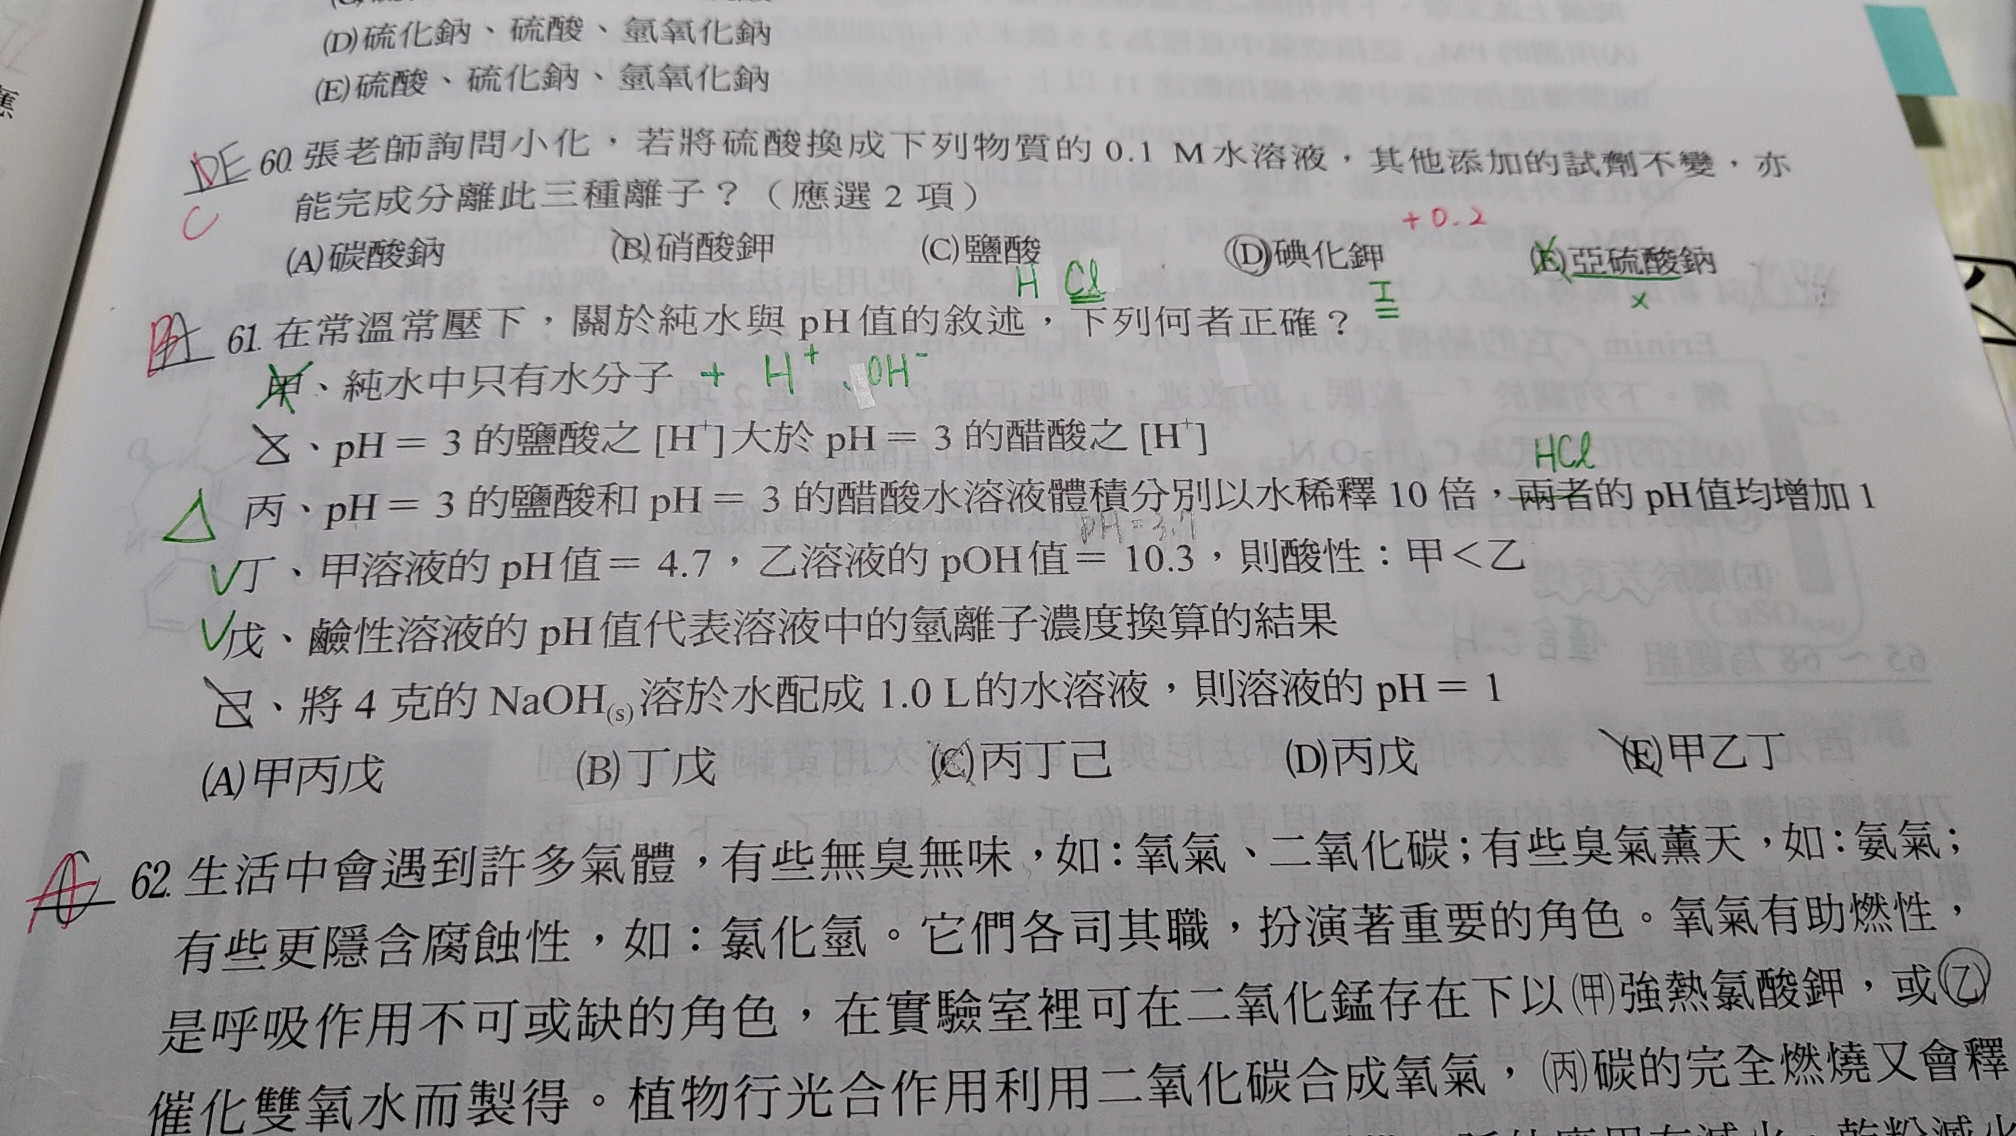 (D)硫化鈉、硫酸、氫氧化鈉
(E)硫酸、硫化鈉、氫氧化鈉
DE 60. 張老師詢問小化，若將硫酸換成下列物質的 0.1 M 水溶液，其他添加的試劑不變，亦
C 能完成分離此三種離子？（應選 2 項）
+0.2
(A)碳酸鈉 (B)硝酸鉀 (C)鹽酸 (D)碘化鉀 (E)亞硫酸鈉
H Cl I x
61. 在常溫常壓下，關於純水與 pH 值的敘述，下列何者正確？
甲、純水中只有水分子 + H⁺、OH⁻
乙、pH = 3 的鹽酸之 [H⁺] 大於 pH = 3 的醋酸之 [H⁺]
HCl
△ 丙、pH = 3 的鹽酸和 pH = 3 的醋酸水溶液體積分別以水稀釋 10 倍，兩者的 pH 值均增加 1
pH=3.7
✓丁、甲溶液的 pH 值 = 4.7，乙溶液的 pOH 值 = 10.3，則酸性：甲＜乙
✓戊、鹼性溶液的 pH 值代表溶液中的氫離子濃度換算的結果
己、將 4 克的 NaOH(s) 溶於水配成 1.0 L 的水溶液，則溶液的 pH = 1
(A)甲丙戊 (B)丁戊 (C)丙丁己 (D)丙戊 (E)甲乙丁
A 62. 生活中會遇到許多氣體，有些無臭無味，如：氧氣、二氧化碳；有些臭氣薰天，如：氨氣；
有些更隱含腐蝕性，如：氯化氫。它們各司其職，扮演著重要的角色。氧氣有助燃性，
是呼吸作用不可或缺的角色，在實驗室裡可在二氧化錳存在下以(甲)強熱氯酸鉀，或(乙)
催化雙氧水而製得。植物行光合作用利用二氧化碳合成氧氣，(丙)碳的完全燃燒又會釋